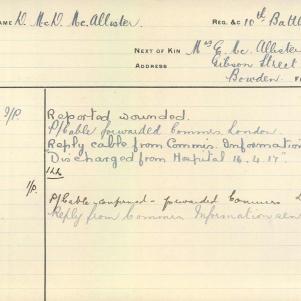 NAME D. McD. Mc.Allister. REG. &C 10th Battl
NEXT OF KIN Mrs E. Mc. Allister
ADDRESS Gibson Street
Bowden.
9/P. Reported wounded.
P/Cable forwarded Commis. London.
Reply cable from Commis. Information
"Discharged from Hospital 16.4.17".
1/P. P/Cable confirmed - forwarded Commrs
Reply from Commrs Information sen